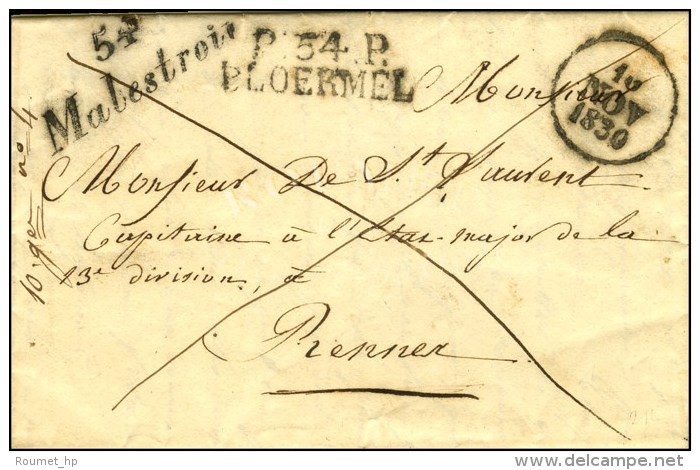 54
Malestroit
P. 54. P.
PLOERMEL
NOV
1830
Monsieur
Monsieur De St Laurent
Capitaine à l'état-major de la
13e division, à
Rennes
Roumet_hp
©delcampe.net